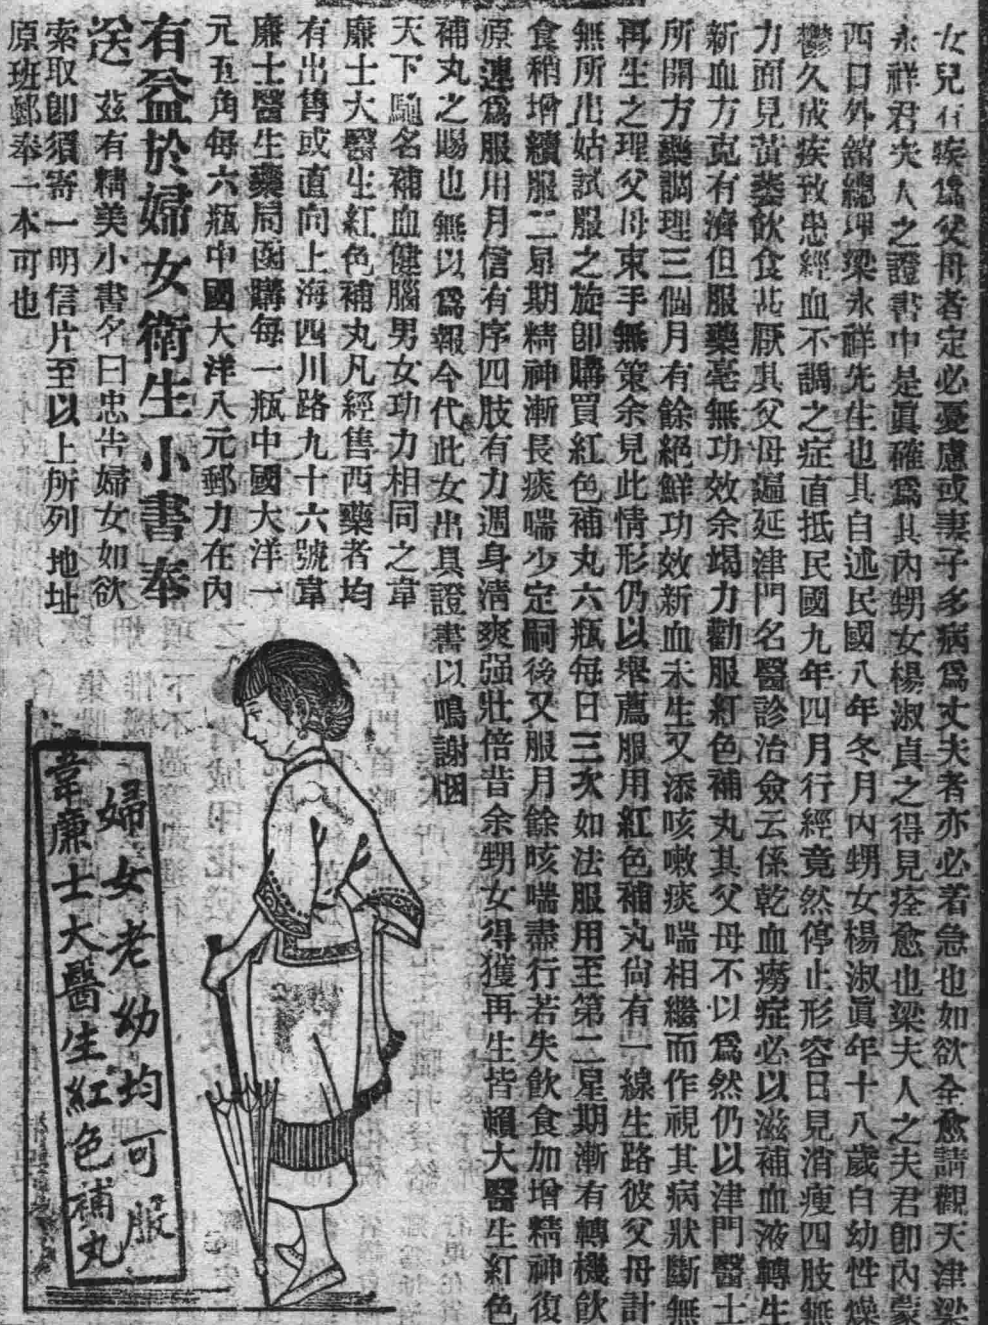 女兒有疾爲父母者定必憂慮或妻子多病爲丈夫者亦必着急也如欲全愈請觀天津梁
永祥君夫人之證書中是眞確爲其內甥女楊淑貞之得見痊愈也梁夫人之夫君卽內蒙
西口外舘總理梁永祥先生也其自述民國八年冬月內甥女楊淑眞年十八歲自幼性燥
鬱久成疾致患經血不調之症直抵民國九年四月行經竟然停止形容日見消瘦四肢無
力面見黃萎飲食苦厭其父母遍延津門名醫診治僉云係乾血癆症必以滋補血液轉生
新血方克有濟但服藥毫無功效余竭力勸服紅色補丸其父母不以爲然仍以津門醫士
所開方藥調理三個月有餘絕鮮功效新血未生又添咳嗽痰喘相繼而作視其病狀斷無
再生之理父母束手無策余見此情形仍以舉薦服用紅色補丸尙有一線生路彼父母計
無所出姑試服之旋卽購買紅色補丸六瓶每日三次如法服用至第二星期漸有轉機飲
食稍增續服二星期精神漸長痰喘少定嗣後又服月餘咳喘盡行若失飲食加增精神復
原連爲服用月信有序四肢有力週身淸爽强壯倍昔余甥女得獲再生皆賴大醫生紅色
補丸之賜也無以爲報今代此女出具證書以鳴謝悃
天下馳名補血健腦男女功力相同之韋
廉士大醫生紅色補丸凡經售西藥者均
有出售或直向上海四川路九十六號韋
廉士醫生藥局函購每一瓶中國大洋一
元五角每六瓶中國大洋八元郵力在內
有益於婦女衞生小書奉
送 茲有精美小書名曰忠告婦女如欲
索取卽須寄一明信片至以上所列地址
原班郵奉一本可也
婦女老幼均可服
韋廉士大醫生紅色補丸